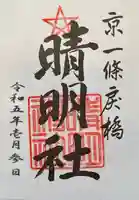 京一條戻橋
晴明社
令和五年壱月参日